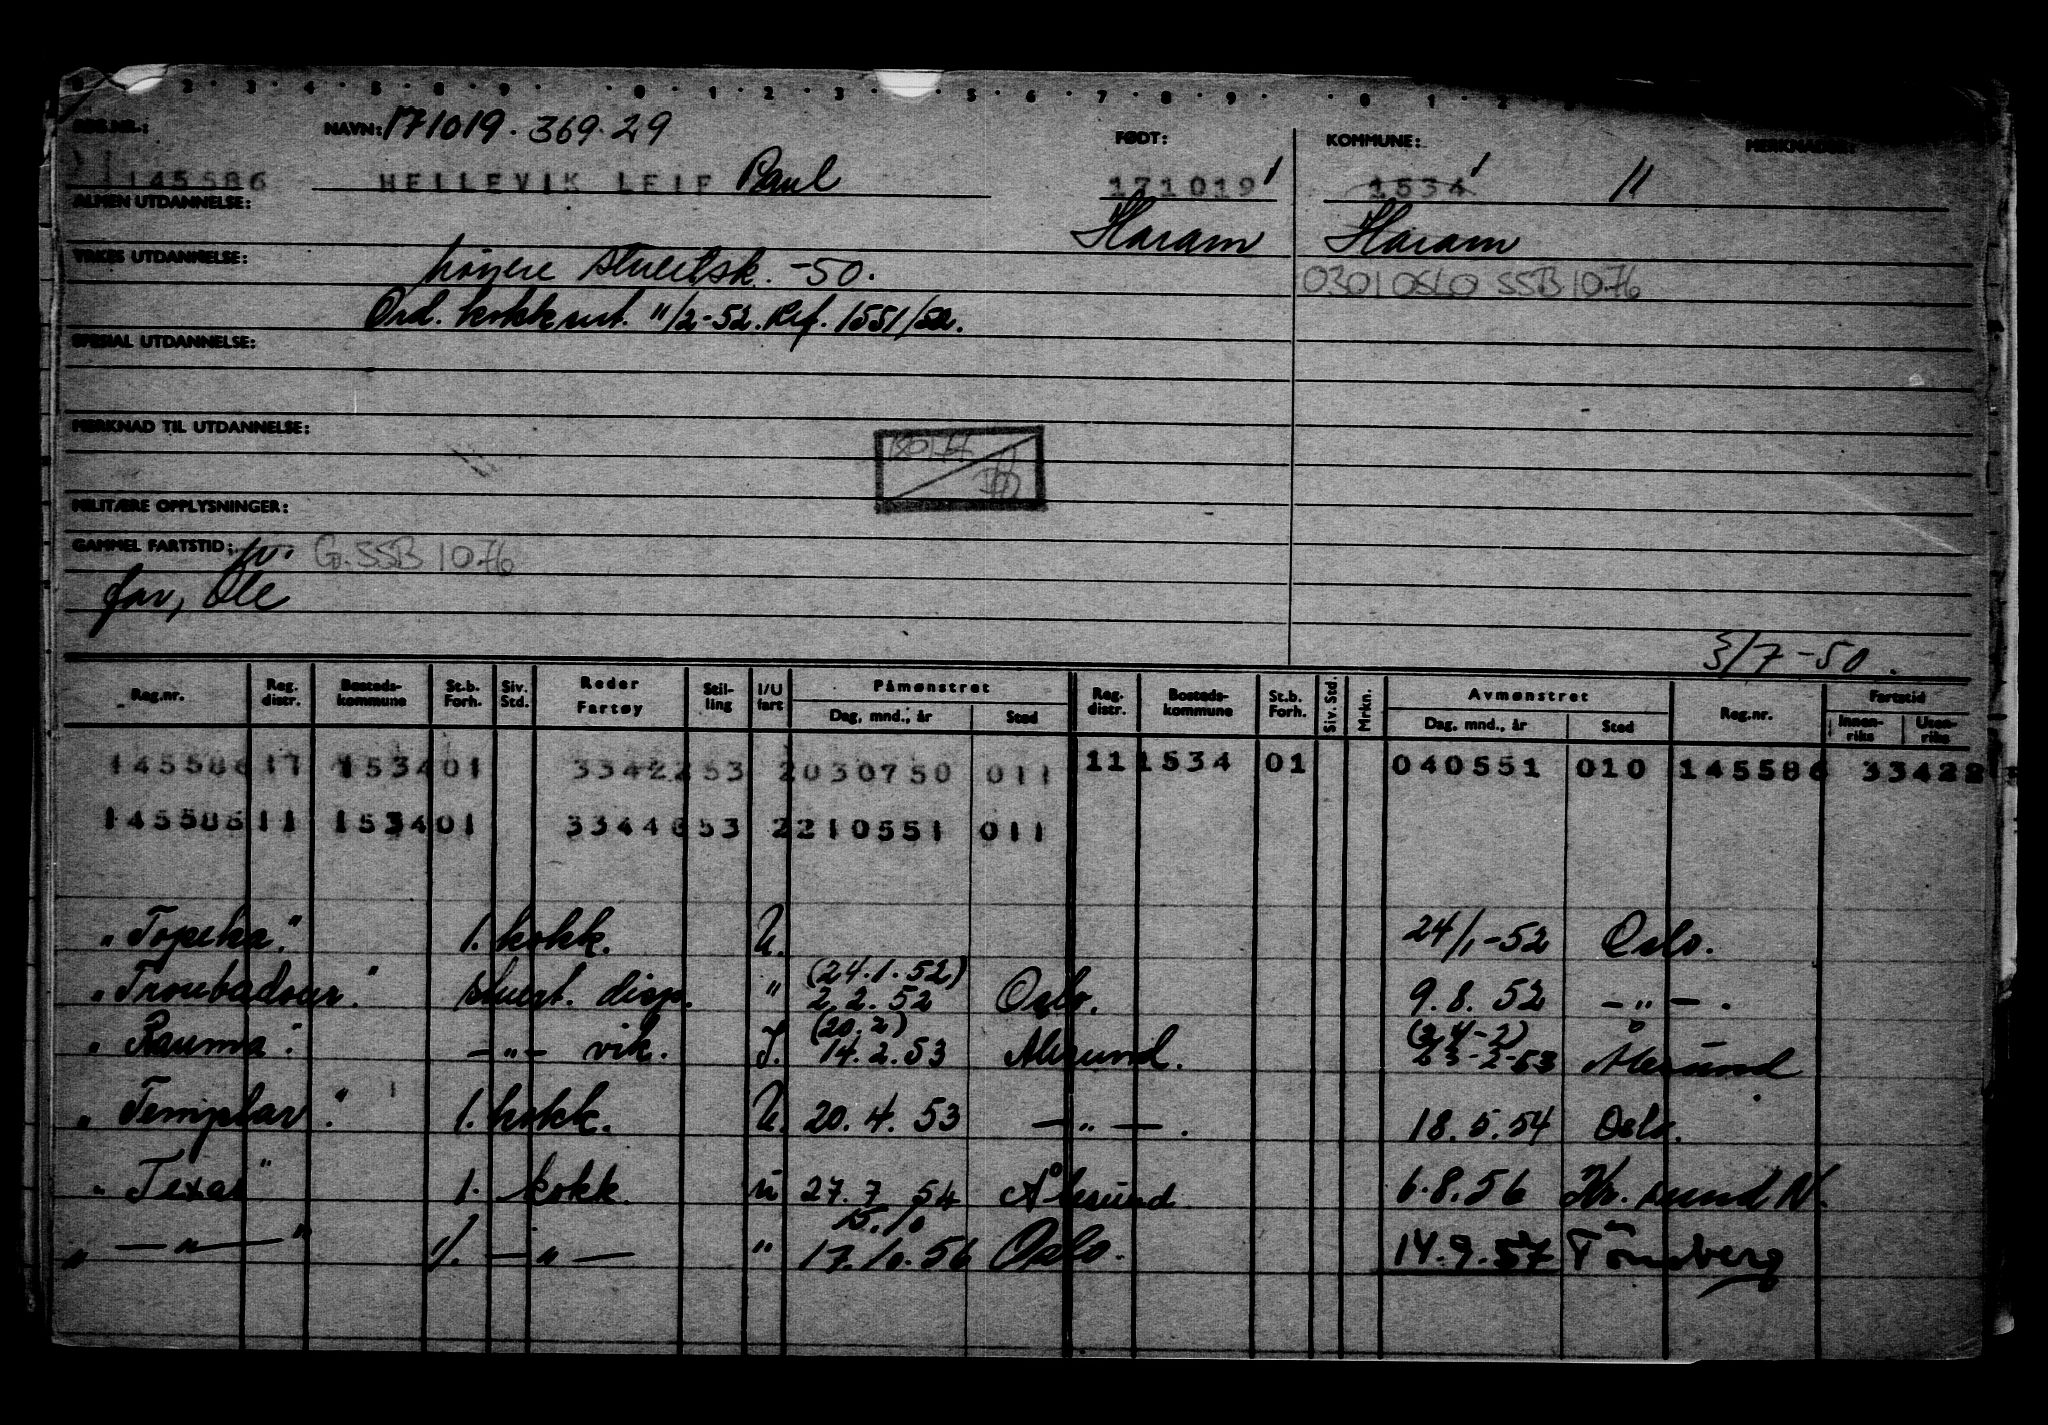 REG.NR.: NAVN: 171019. 369.29 FØDT: KOMMUNE: MERKNADER:
145586 HELLEVIK LEIF Paul 171019 1534 11
ALMEN UTDANNELSE: Haram Haram
YRKES UTDANNELSE: høyere stuertsk. -50. 0301 OSLO SSB 10.76
Ord. kokksert. 11/2-52. Ref. 1551/52.
SPESIAL UTDANNELSE:
MERKNAD TIL UTDANNELSE:
MILITÆRE OPPLYSNINGER:
GAMMEL FARTSTID: G. SSB 10.76
far, Ole
3/7-50.
Reg.nr. Reg. distr. Bosteds-kommune St.b. Forh. Siv. Std. Reder Fartøy Stil-ling I/U fart Påmønstret Dag, mnd., år Sted Reg. distr. Bosteds-kommune St.b. Forh. Siv. Std. Mrkn. Avmønstret Dag, mnd., år Sted Reg.nr. Fartstid Innen-riks Uten-riks
145586 11 1534 01 33422 53 2 030750 011 11 1534 01 040551 010 145586 33422
145586 11 1534 01 33446 53 2 210551 011
"Topeka." 1. kokk. U. 24/1-52 Oslo.
"Troubadour." stuert. disp. " (24.1.52) 2.2.52 Oslo. 9.8.52 -"-.
"Rauma". -"- vik. I. (20.2) 14.2.53 Ålesund. (24-2) 23-2-53 Ålesund
"Templar". 1. kokk. U. 20.4.53 -"-. 18.5.54 Oslo.
"Texas" 1. kokk. u 27.7.54 Ålesund. 6.8.56 Kr. sund N.
"-"-" 1. -"- " 15.10 17.10.56 Oslo. 14.9.57 Tönsberg